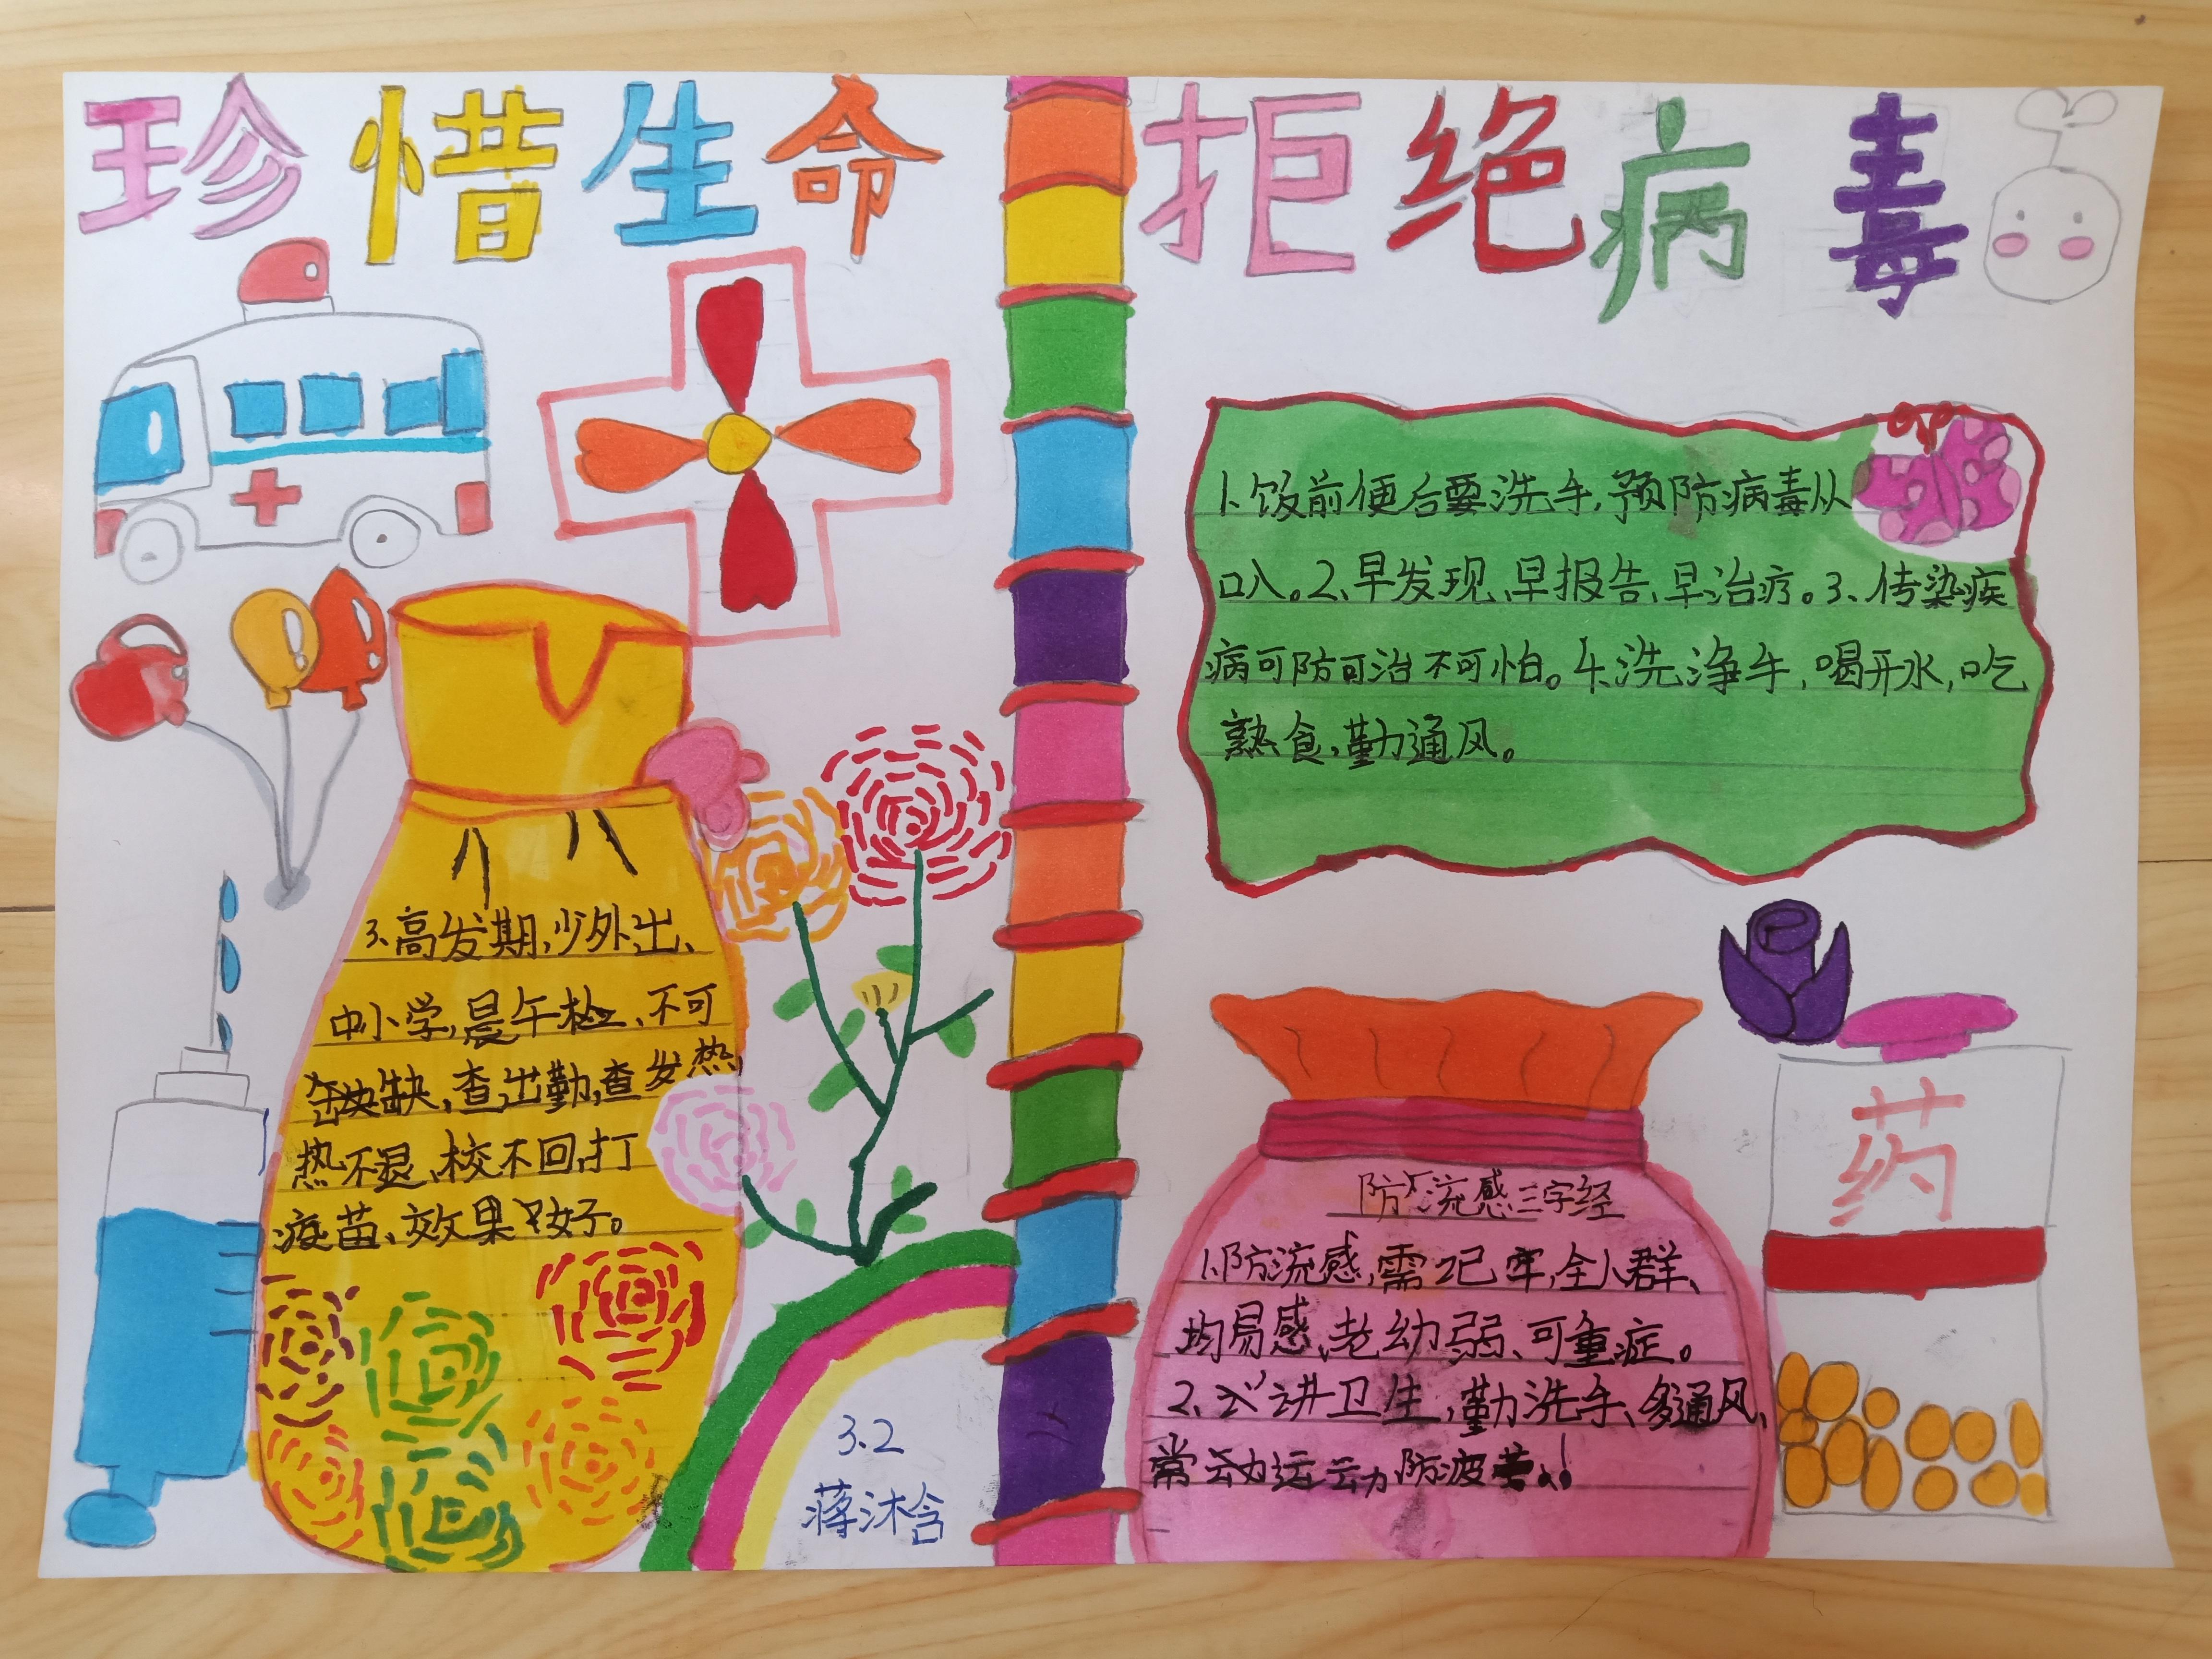 珍惜生命
拒绝病毒
1、饭前便后要洗手,预防病毒从
口入。2、早发现、早报告、早治疗。3、传染疾
病可防可治不可怕。4、洗净手,喝开水,吃
熟食,勤通风。
3、高发期,少外出、
中小学,晨午检、不可
缺,查出勤,查发热,
热不退、校不回,打
疫苗、效果好。
防流感三字经
1、防流感,需记牢,全人群、
均易感、老幼弱、可重症。
2、讲卫生,勤洗手、多通风、
常运动防疲劳。!
药
3.2
蒋沐含